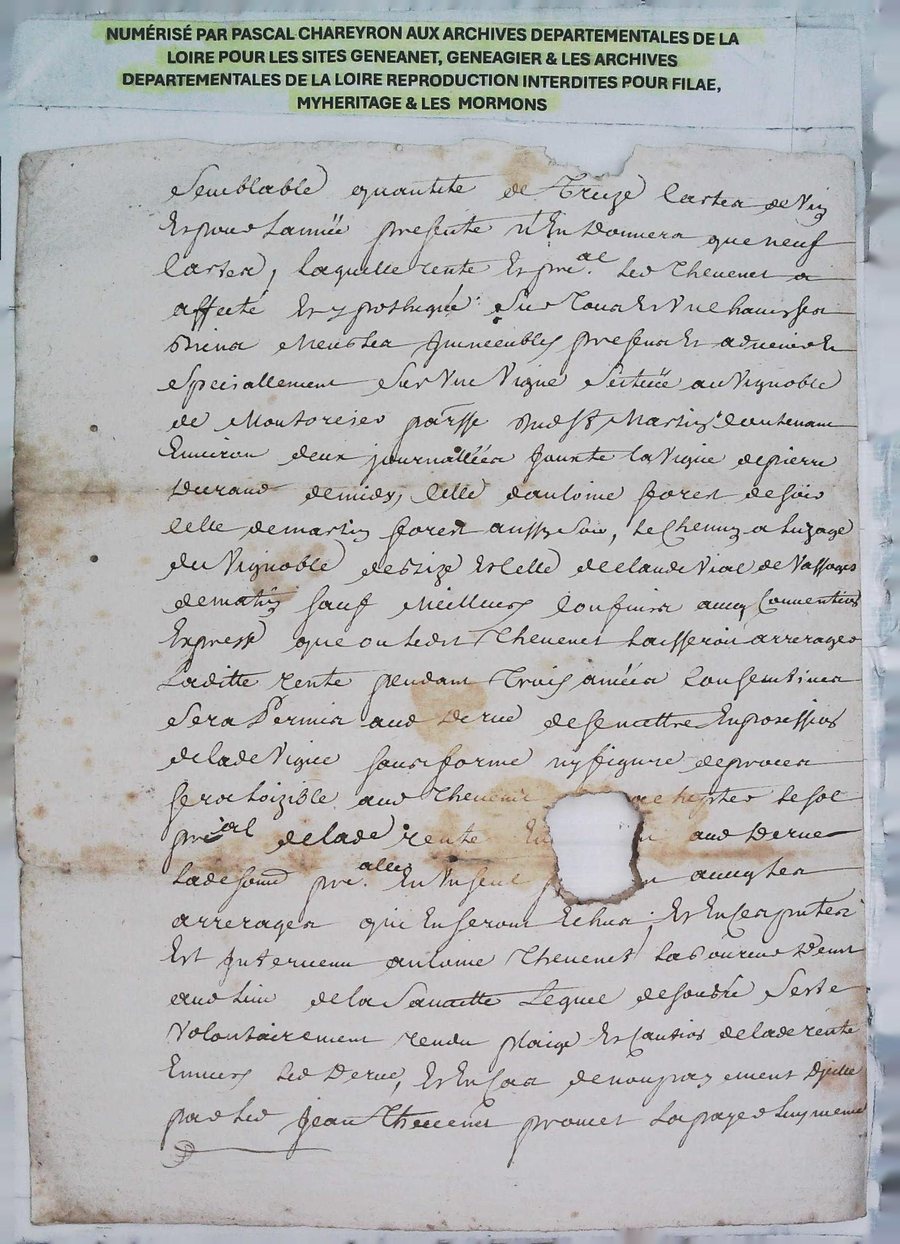 NUMÉRISÉ PAR PASCAL CHAREYRON AUX ARCHIVES DEPARTEMENTALES DE LA
LOIRE POUR LES SITES GENEANET, GENEAGIER & LES ARCHIVES
DEPARTEMENTALES DE LA LOIRE REPRODUCTION INTERDITES POUR FILAE,
MYHERITAGE & LES MORMONS
semblable quantité de Treize
Et pour Lannée presente n'En donnera que neuf
laquelle rente Et pnal. led Thevenet a
affecté Et ypothequé sur tous Et
biens meubles Immeubles presens Et advenir Et
speciallement sur Une Vigne scituée au Vignoble
de parsse dud St Martin Contenant
Environ deux journallées jouxte la Vigne de pierre
Durand de midy, Celle d'antoine forest de soir
Celle de martin forest aussy soir, le Chemin a Luzage
du Vignoble de bize Et Celle de Claude Vial de
de matin sauf meilleurs Confins avec Convention
Expresse que ou ledit Thevenet laisseroit arrerager
Laditte rente pendant Trois années Consecutives
sera Permis aud Derue de se mettre En possession
de lade Vigne sans forme ny figure de proces
sera loizible aud Thevenet le sol
pnal de lade rente En aud Derue
lade somme pnalle En Un seul avec les
arrerages qui En seront Echus, Et En Ces
Est Intervenu antoine Thevenet laboureur Demt
aud lieu de la Sauvette Lequel de son bon
Volontairement rendu plaige Et Caution de lade rente
Envers led Derue, Et En Cas de non payement D'jcelle
par led Jean Thevenet promet la payer luy meme